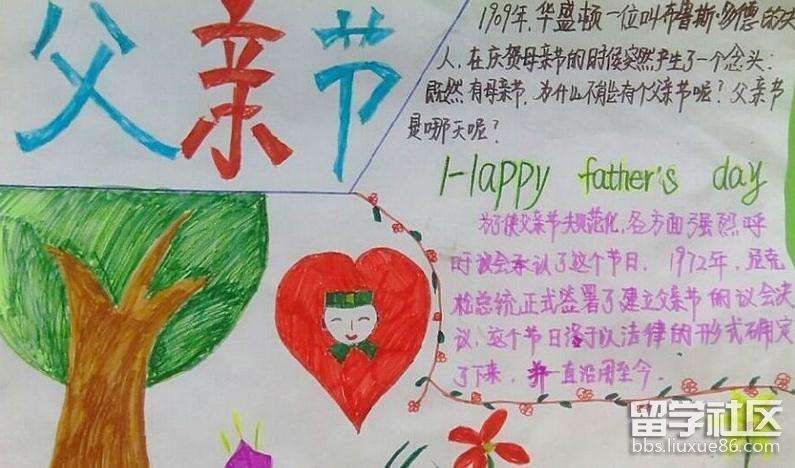 父亲节
1909年,华盛顿一位叫布鲁斯·多德的夫
人,在庆贺母亲节的时候突然产生了一个念头:
既然有母亲节,为什么不能有个父亲节呢?父亲节
是哪天呢?
Happy father's day
为了使父亲节规范化,各方面强烈呼
吁议会承认了这个节日.1972年,尼克
松总统正式签署了建立父亲节的议会决
议,这个节日终于以法律的形式确定
了下来,并一直沿用至今.
留学社区
bbs.liuxue86.com